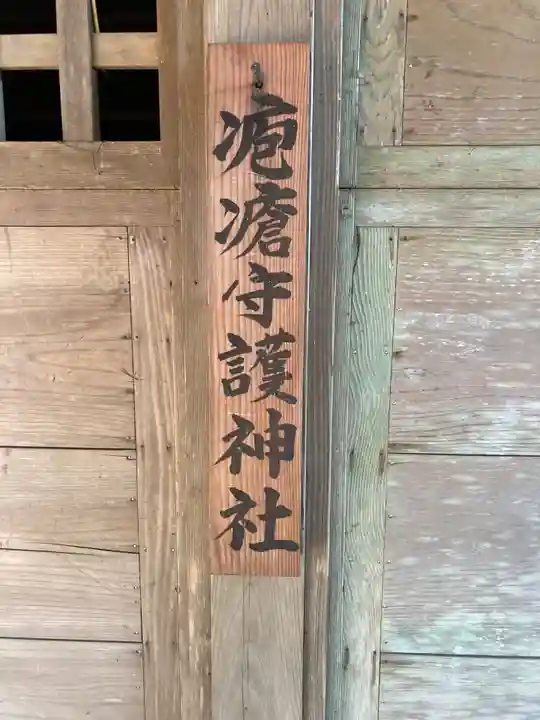 疱瘡守護神社